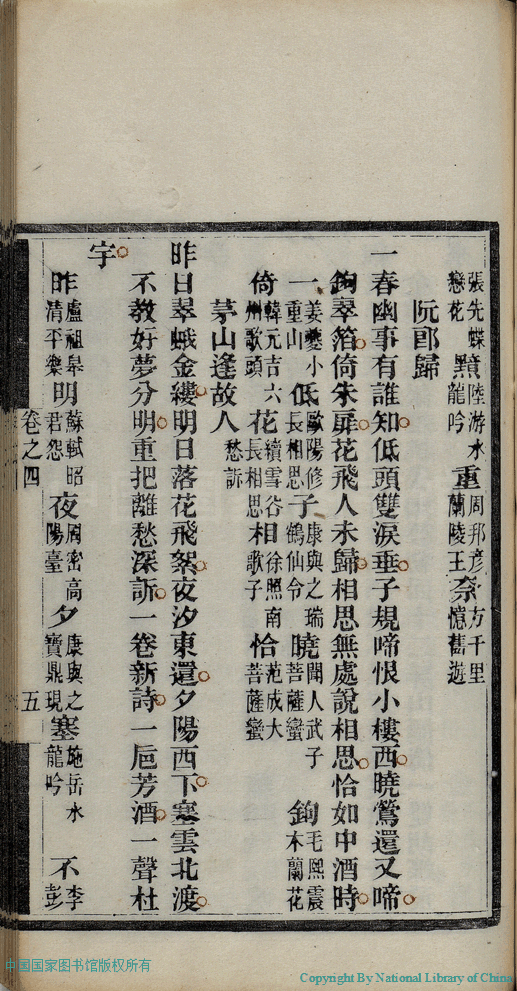 張先蝶戀花 黰 陸游水龍吟 重 周邦彦蘭陵王 奈 方千里憶舊遊
阮郎歸
一春幽事有誰知低頭雙淚垂子規啼恨小樓西曉鶯還又啼
鉤翠箔倚朱扉花飛人未歸相思無處說相思恰如中酒時
一 姜夔小重山 低 歐陽修長相思 子 康與之瑞鶴仙令 曉 聞人武子菩薩蠻 鉤 毛熙震木蘭花
倚 韓元吉六州歌頭 花 續雪谷長相思 相 徐照南歌子 恰 范成大菩薩蠻
茅山逢故人 愁訴
昨日翠蛾金縷明日落花飛絮夜汐東還夕陽西下塞雲北渡
不教好夢分明重把離愁深訴一卷新詩一巵芳酒一聲杜
宇
昨 盧祖皋清平樂 明 蘇軾昭君怨 夜 周密高陽臺 夕 康與之寶鼎現 塞 施岳水龍吟 不 李彭
卷之四 五
中国国家图书馆版权所有
Copyright By National Library of China